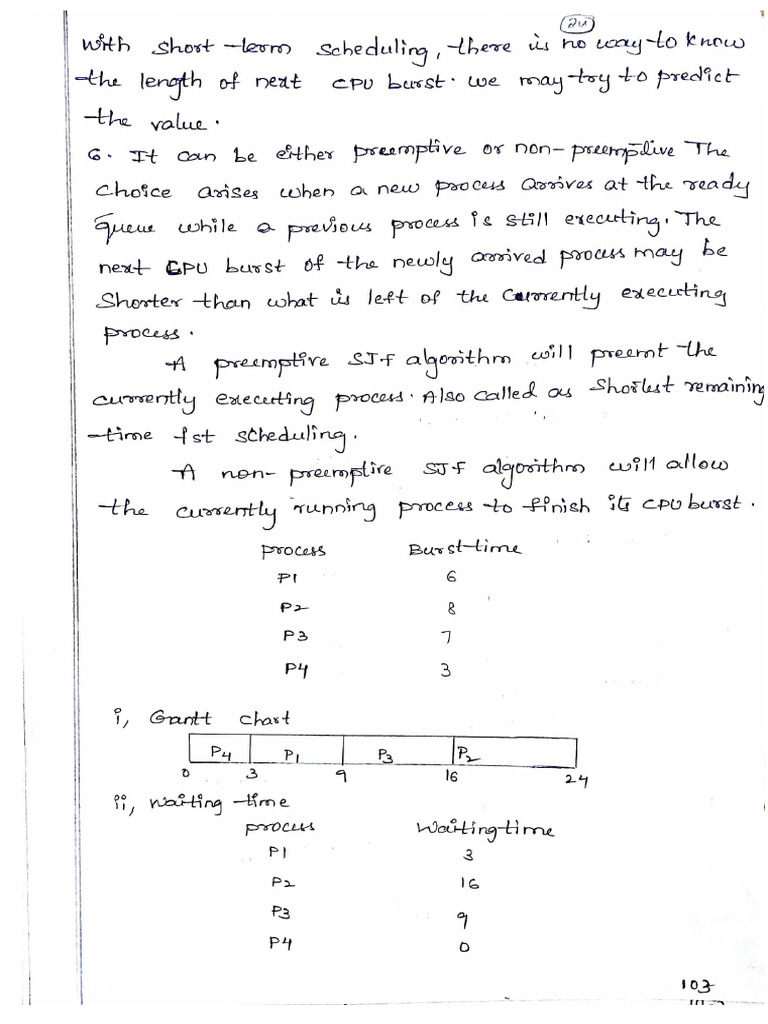 24
With short-term scheduling, there is no way to know
the length of next CPU burst. we may try to predict
the value.
6. It can be either preemptive or non-preemptive The
choice arises when a new process arrives at the ready
queue while a previous process is still executing. The
next CPU burst of the newly arrived process may be
Shorter than what is left of the currently executing
process.
A preemptive SJf algorithm will preemt the
currently executing process. Also called as Shortest remaining
time fst scheduling.
A non-preemptive SJf algorithm will allow
the currently running process to finish its CPU burst.
process Burst-time
P1 6
P2 8
P3 7
P4 3
i, Grantt chart
P4 P1 P3 P2
0 3 9 16 24
ii, waiting time
process Waiting time
P1 3
P2 16
P3 9
P4 0
103